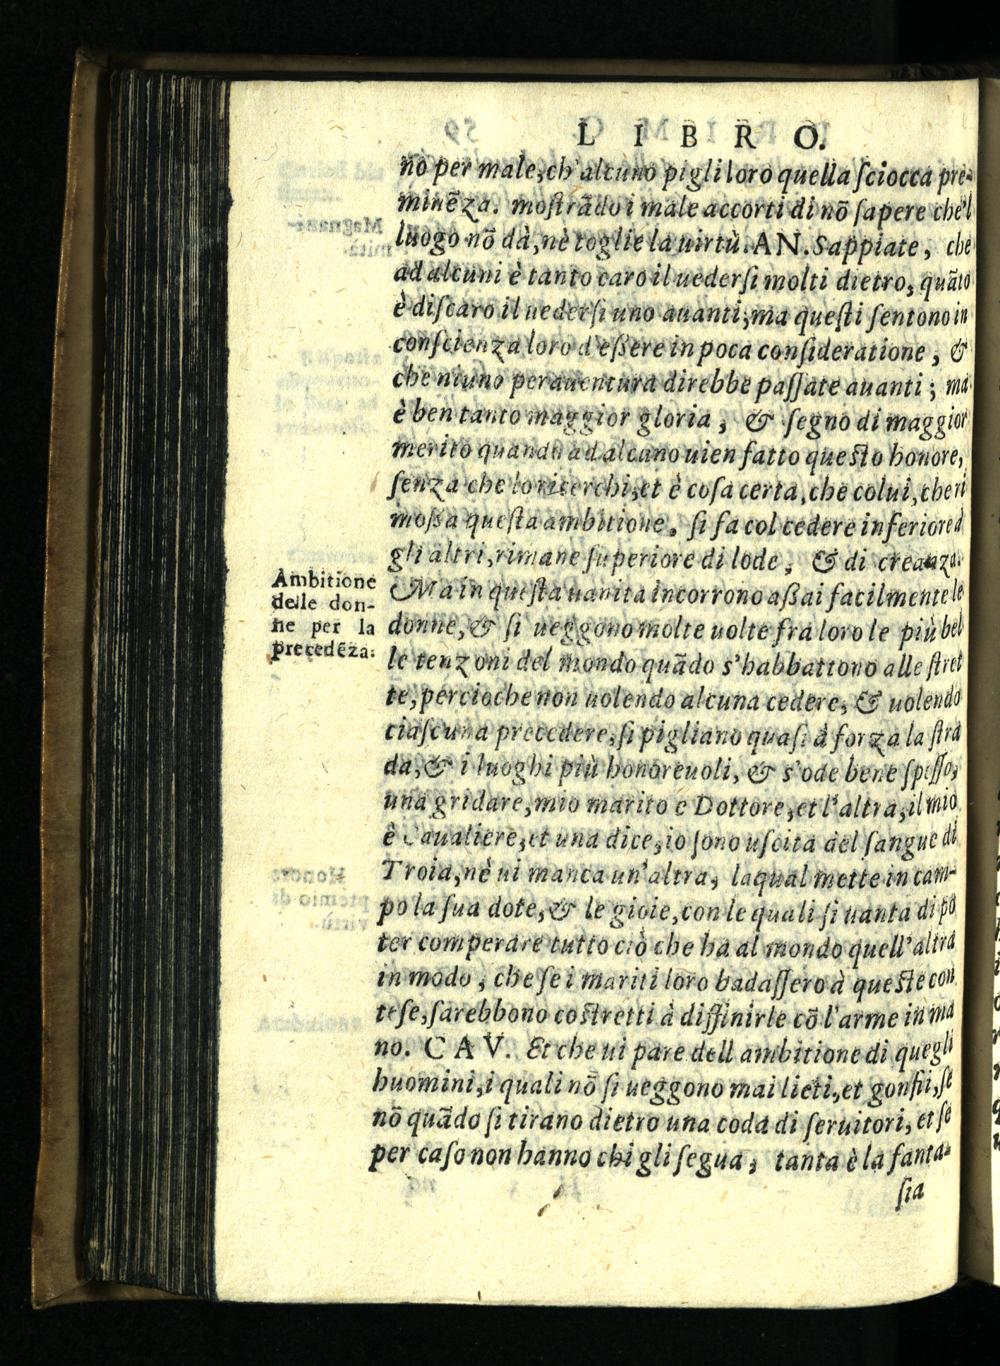 LIBRO.
no per male, ch'alcuno pigli loro quella ſciocca pre-
minẽza. moſtrãdo i male accorti di nõ ſapere che'l
luogo nõ dà, nè toglie la uirtù. AN. Sappiate, che
ad alcuni è tanto caro il uederſi molti dietro, quãto
è diſcaro il uederſi uno auanti; ma queſti ſentono in
conſcienza loro d'eßere in poca conſideratione, &
che niuno perauentura direbbe paſſate auanti; ma
è ben tanto maggior gloria, & ſegno di maggior
merito quando ad alcuno uien fatto queſto honore,
ſenza che lo ricerchi, et è coſa certa, che colui, che ri
moßa queſta ambitione, ſi fa col cedere inferiore à
gli altri, rimane ſuperiore di lode, & di creanza.
Ambitione
delle don-
ne per la
precedẽza:
Ma in queſta uanita incorrono aßai facilmente le
donne, & ſi ueggono molte uolte fra loro le più bel
le tenzoni del mondo quãdo s'habbattono alle ſtret
te, percioche non uolendo alcuna cedere, & uolendo
ciaſcuna precedere, ſi pigliano quaſi à forza la ſtra
da, & i luoghi più honoreuoli, & s'ode bene ſpeſſo,
una gridare, mio marito e Dottore, et l'altra, il mio
è Caualiere, et una dice, io ſono uſcita del ſangue di
Troia, nè ui manca un'altra, laqual mette in cam-
po la ſua dote, & le gioie, con le quali ſi uanta di po
ter comperare tutto ciò che ha al mondo quell'altra
in modo, che ſe i mariti loro badaſſero à queſte con
teſe, ſarebbono coſtretti à diffinirle cõ l'arme in ma
no. CAV. Et che ui pare dell ambitione di quegli
huomini, i quali nõ ſi ueggono mai lieti, et gonfii, ſe
nõ quãdo ſi tirano dietro una coda di ſeruitori, et ſe
per caſo non hanno chi gli ſegua, tanta è la fanta-
ſia